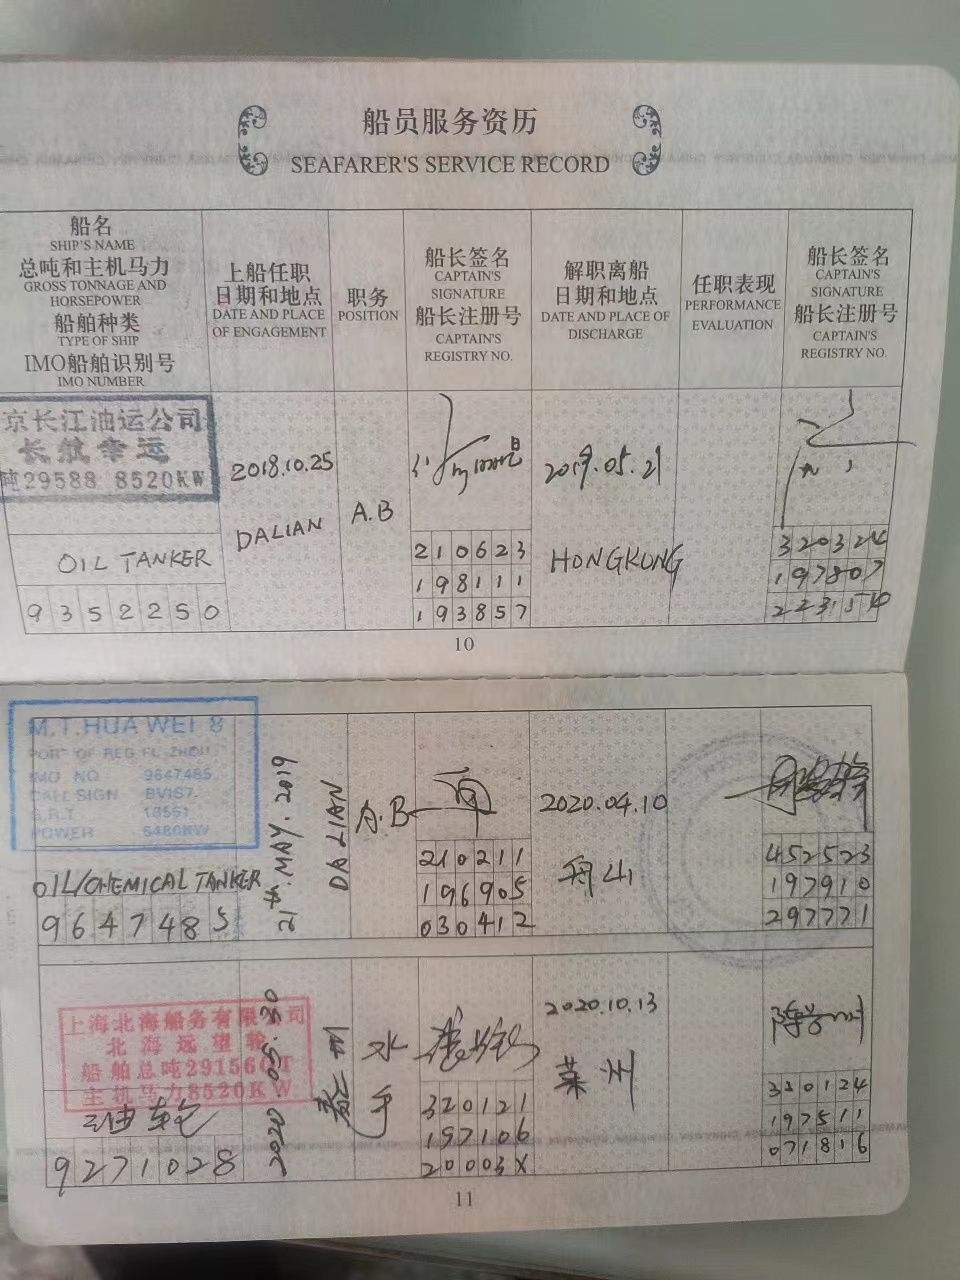 船员服务资历
SEAFARER'S SERVICE RECORD
船名
SHIP'S NAME
总吨和主机马力
GROSS TONNAGE AND
HORSEPOWER
船舶种类
TYPE OF SHIP
IMO船舶识别号
IMO NUMBER
上船任职
日期和地点
DATE AND PLACE
OF ENGAGEMENT
职务
POSITION
船长签名
CAPTAIN'S
SIGNATURE
船长注册号
CAPTAIN'S
REGISTRY NO.
解职离船
日期和地点
DATE AND PLACE OF
DISCHARGE
任职表现
PERFORMANCE
EVALUATION
船长签名
CAPTAIN'S
SIGNATURE
船长注册号
CAPTAIN'S
REGISTRY NO.
京长江油运公司
长航幸运
吨29588 8520KW
OIL TANKER
9352250
2018.10.25
DALIAN
A.B
210623
198111
193857
2019.05.21
HONGKONG
320324
197807
10
M.T.HUA WEI 8
PORT OF REG FU ZHOU
IMO NO 9647485
CALL SIGN BVIS7
G.R.T
POWER 6480KW
OIL/CHEMICAL TANKER
9647485
21th.MAY.2019
DALIAN
A.B
210211
196905
030412
2020.04.10
舟山
452523
197910
297771
上海北海船务有限公司
北海远望轮
船舶总吨29156GT
主机马力8520KW
油轮
9271028
2020.05.30
水手
320121
197106
20003X
2020.10.13
莱州
320124
197511
071816
11